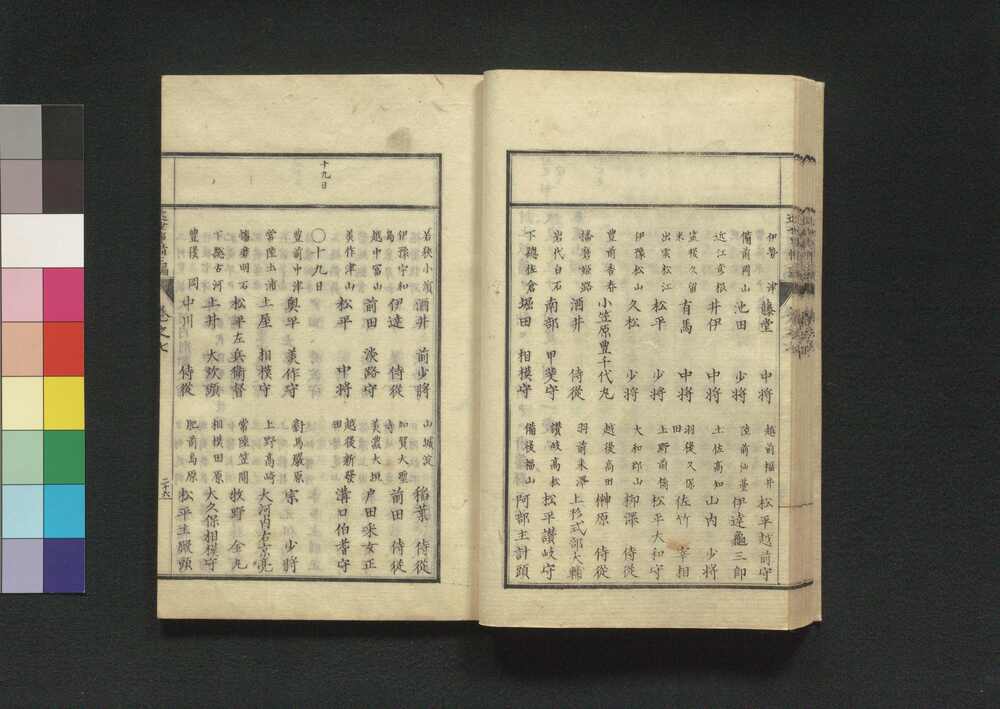 伊勢 津 藤堂 中将 越前福井 松平越前守
備前岡山 池田 少将 陸前仙臺 伊達龜三郎
近江彦根 井伊 中将 土佐高知 山内 少将
筑後久留米 有馬 中将 羽後久保田 佐竹 宰相
出雲松江 松平 少将 上野前橋 松平大和守
伊豫松山 久松 少将 大和郡山 柳澤 侍従
豊前香春 小笠原豊千代丸 越後高田 榊原 侍従
播磨姫路 酒井 侍従 羽前米澤 上杉式部大輔
岩代白石 南部 甲斐守 讃岐高松 松平讃岐守
下総佐倉 堀田 相模守 備後福山 阿部主計頭
十九日
若狭小濱 酒井 前少将 山城淀 稲葉 侍従
伊豫宇和島 伊達 侍従 加賀大聖寺 前田 侍従
越中富山 前田 淡路守 美濃大垣 戸田采女正
美作津山 松平 中将 越後新發田 溝口伯耆守
〇十九日
豊前中津 奥平 美作守 對馬嚴原 宗 少將
常陸土浦 土屋 相模守 上野高崎 大河内右京亮
播磨明石 松平左兵衛督 常陸笠間 牧野 金丸
下総古河 土井 大炊頭 相模田原 大久保相模守
豊後 岡 中川 侍従 肥前島原 松平主殿頭
卷之七
二十六